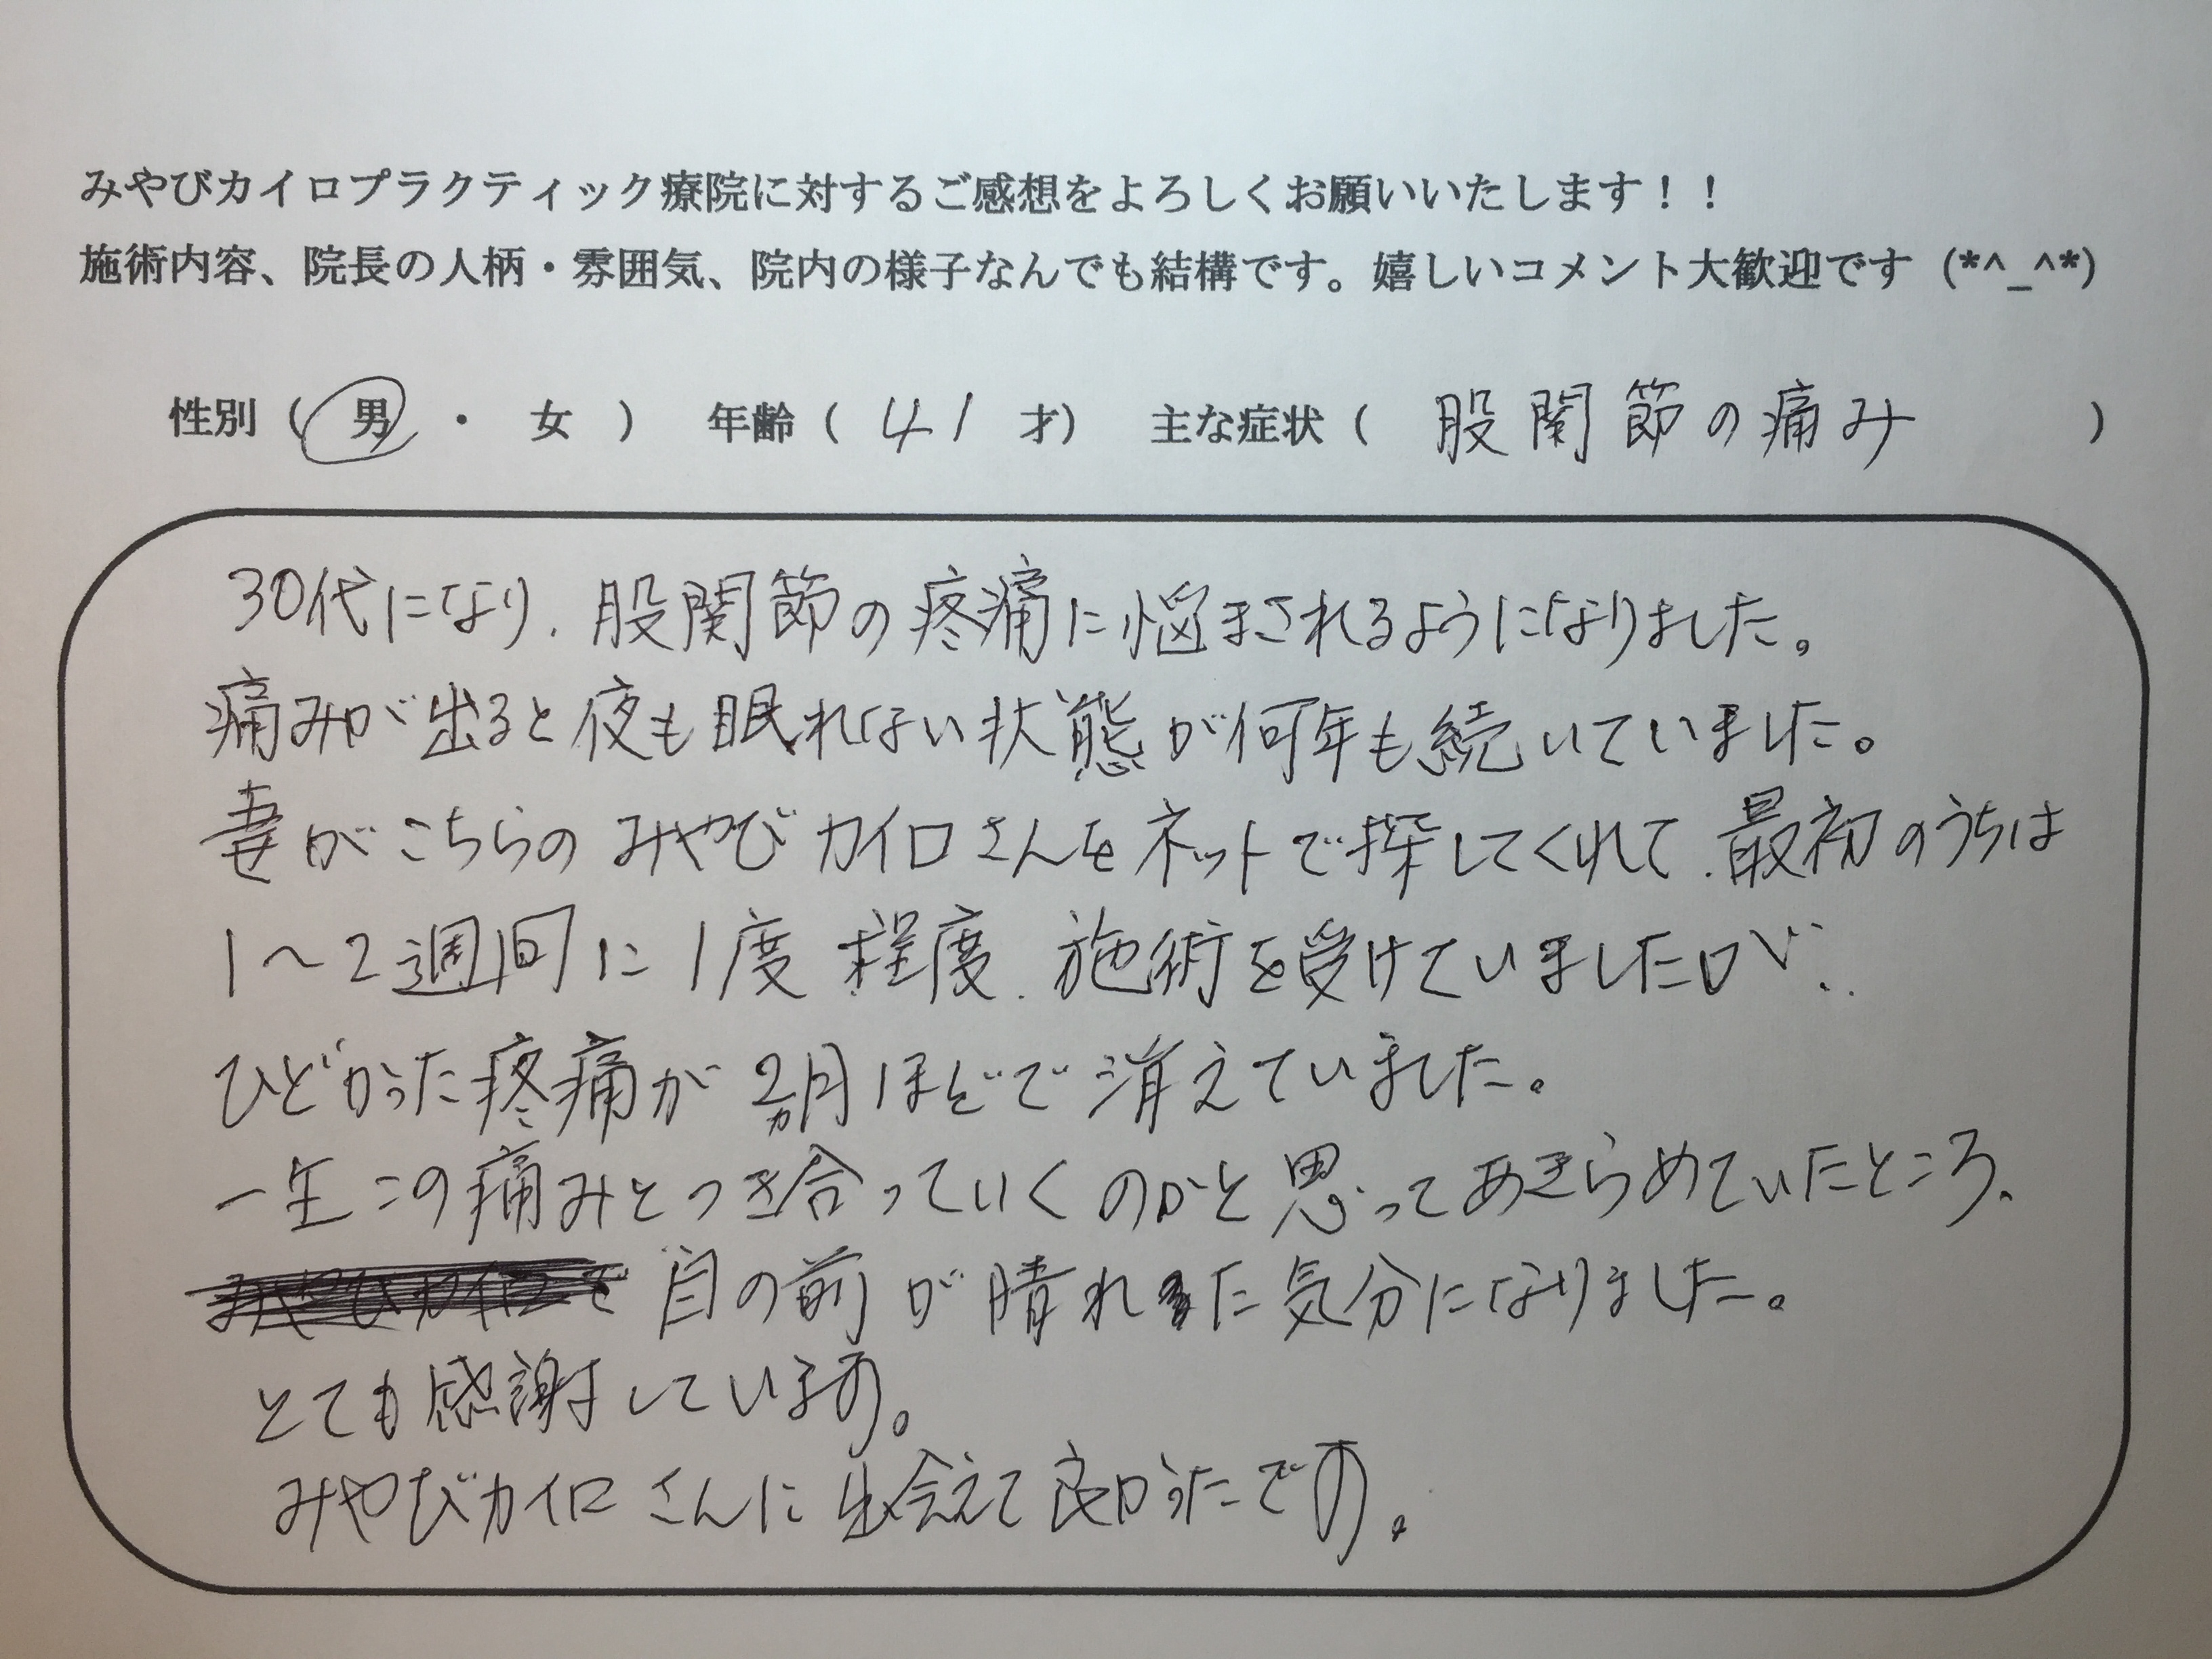 みやびカイロプラクティック療院に対するご感想をよろしくお願いいたします！！
施術内容、院長の人柄・雰囲気、院内の様子なんでも結構です。嬉しいコメント大歓迎です（*^_^*）
性別（ 男 ・ 女 ） 年齢（ 41 才） 主な症状（ 股関節の痛み ）
30代になり、股関節の疼痛に悩まされるようになりました。
痛みが出ると夜も眠れない状態が何年も続いていました。
妻がこちらのみやびカイロさんをネットで探してくれて、最初のうちは
1〜2週間に1度程度、施術を受けていましたが‥
ひどかった疼痛が2ヵ月ほどで消えていました。
一生この痛みとつき合っていくのかと思ってあきらめていたところ、
目の前が晴れた気分になりました。
とても感謝しています。
みやびカイロさんに出会えて良かったです。